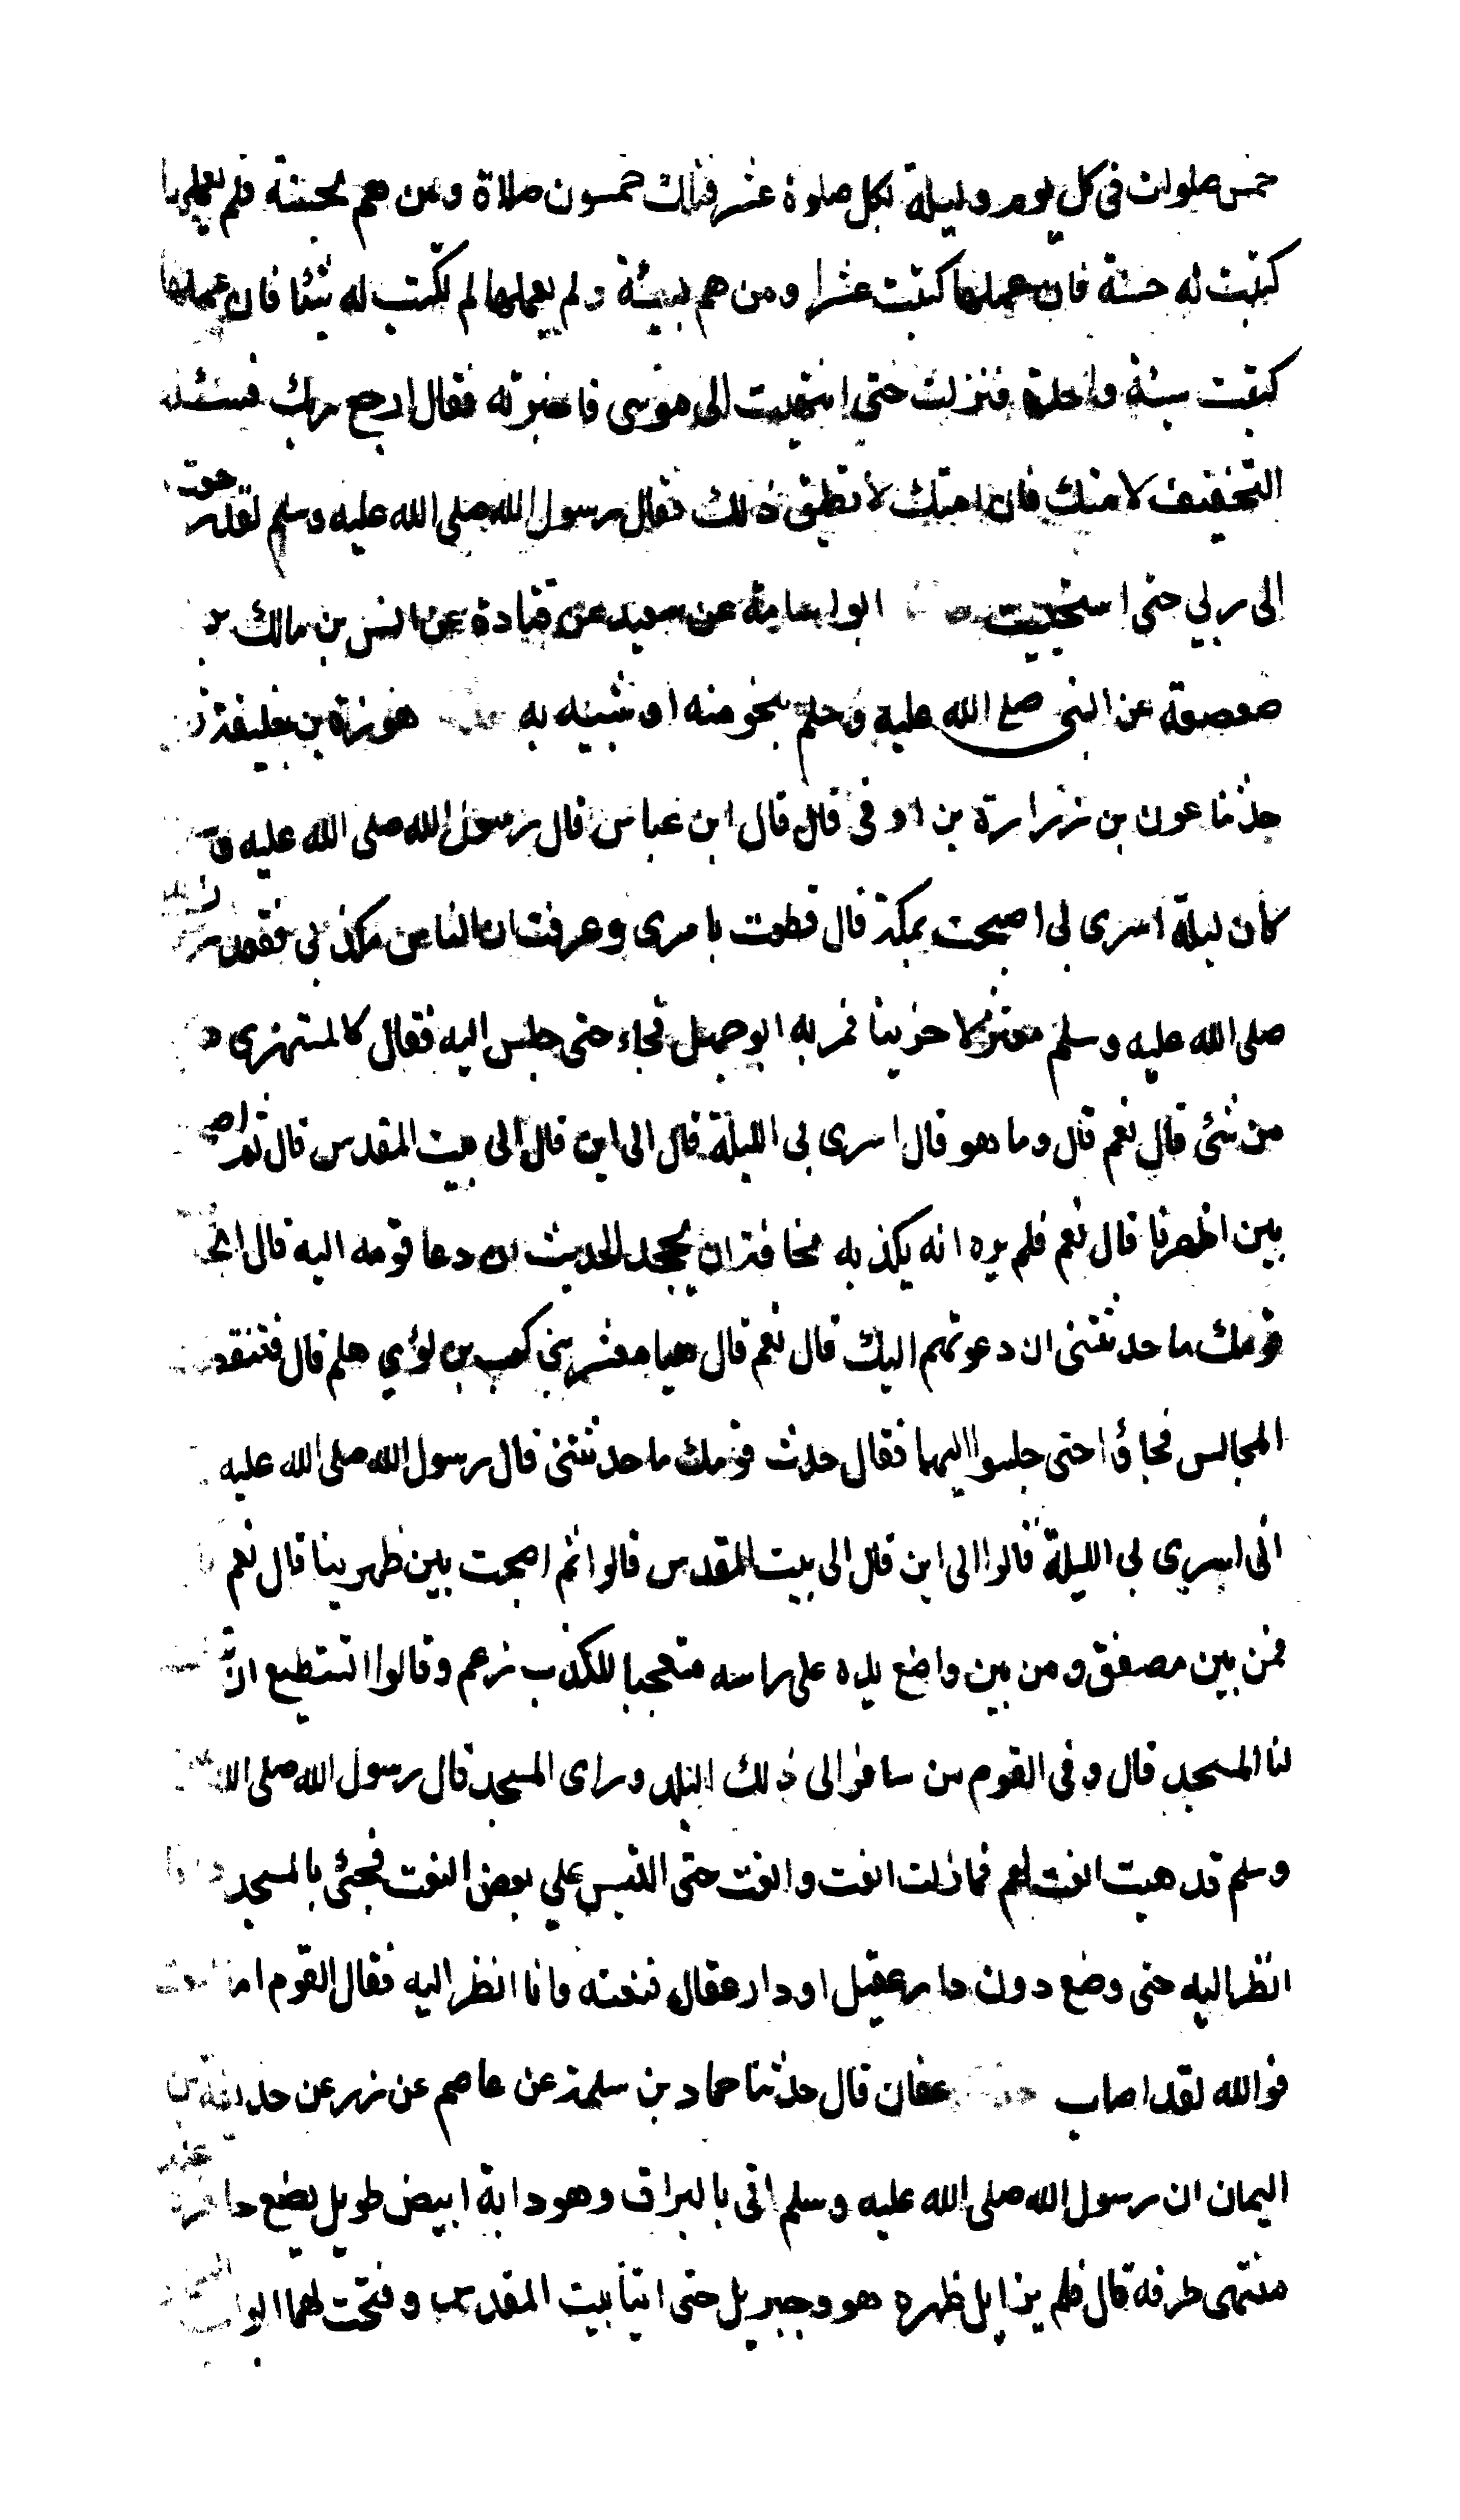 خمس صلوات في كل يوم وليلة لكل صلوة عشر فتلك خمسون صلاة ومن هم بحسنة فلم يعملها
كتبت له حسنة فان عملها كتبت عشرا ومن هم بسيئة ولم يعملها لم تكتب له شيئا فان عملها
كتبت سيئة واحدة فنزلت حتى انتهيت الى موسى فاخبرته فقال ارجع ربك فسئله
التخفيف لامتك فان امتك لا تطيق ذلك فقال رسول الله صلى الله عليه وسلم لقد رجعت
الى ربي حتى استحييت ابو اسامة عن سعيد عن قتادة عن انس بن مالك
صعصعة عن النبي صلع الله عليه وسلم بنحو منه او شبيه به هوزة بن خليفة
حدثنا عون بن زرارة بن اوفى قال قال ابن عباس قال رسول الله صلى الله عليه
كان ليلة اسرى بي اصبحت بمكة قال فظعت بامرى وعرفت ان الناس مكذبي فقعد
صلى الله عليه وسلم معتزلا حزينا فمر به ابو جهل فجاء حتى جلس اليه فقال كالمستهزى
من شئ قال نعم قال وما هو قال اسرى بي الليلة قال الى اين قال الى بيت المقدس قال ثم اصبحت
بين اظهرنا قال نعم فلم يره انه يكذبه مخافة ان يجحد الحديث ان دعا قومه اليه قال اتحدث
قومك ما حدثتنى ان دعوتهم اليك قال نعم قال هيا معشر بني كعب بن لؤي هلم قال فتنقضت
المجالس فجاؤا حتى جلسوا اليهما فقال حدث قومك ما حدثتنى قال رسول الله صلى الله عليه
انى اسرى بي الليلة قالوا الى اين قال الى بيت المقدس قالوا ثم اصبحت بين ظهرينا قال نعم
فمن بين مصفق ومن بين واضع يده على راسه متعجبا للكذب زعم وقالوا اتستطيع ان
لنا المسجد قال وفى القوم من سافر الى ذلك البلد وراى المسجد قال رسول الله صلى الله
وسلم قد هبت انعت لهم فمازلت انعت وانعت حتى التبس علي بعض النعت فجئ بالمسجد
انظر اليه حتى وضع دون دار عقيل او دار عقال فنعته وانا انظر اليه فقال القوم اما النعت
فوالله لقد اصاب عفان قال حدثنا حماد بن سلمة عن عاصم عن زر عن حذيفة بن
اليمان ان رسول الله صلى الله عليه وسلم اتى بالبراق وهو دابة ابيض طويل يضع حافره
منتهى طرفه قال فلم يزايل ظهره هو وجبريل حتى اتيا بيت المقدس وفتحت لهما ابواب